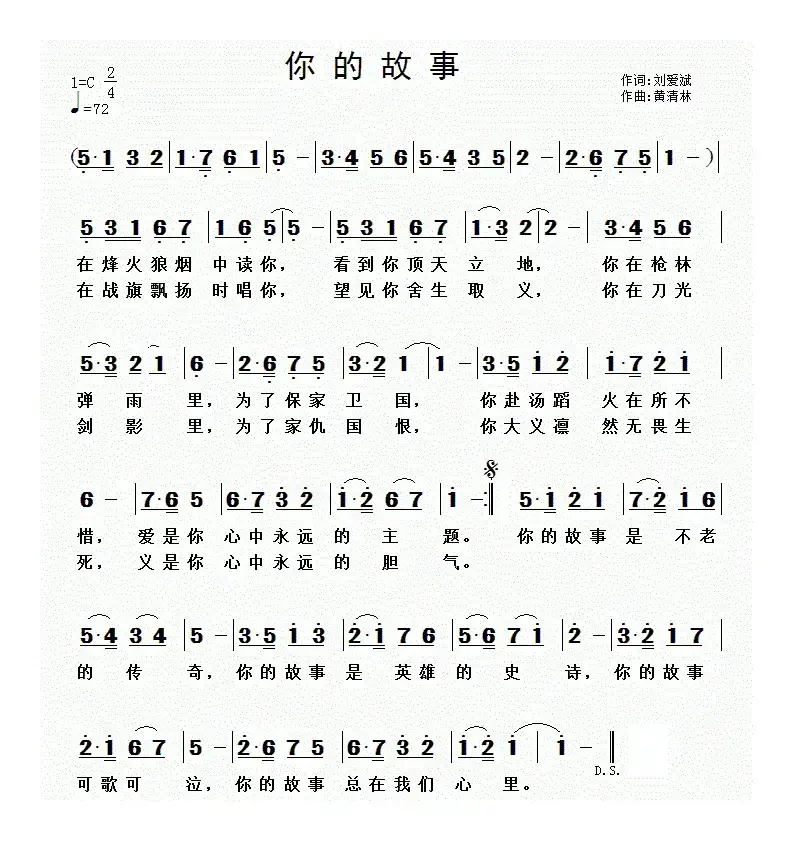 你的故事
1=C 2/4
作词:刘爱斌
♩=72
作曲:黄清林
(5·1 3 2|1·7 6 1|5 －|3·4 5 6|5·4 3 5|2 －|2·6 7 5|1 －)|
5 3 1 6 7|1 6 5|5 －|5 3 1 6 7|1·3 2|2 －|3·4 5 6|
在烽火狼烟 中读你， 看到你顶天 立 地， 你在枪林
在战旗飘扬 时唱你， 望见你舍生 取 义， 你在刀光
5·3 2 1|6 －|2·6 7 5|3·2 1|1 －|3·5 1 2|1·7 2 1|
弹 雨 里，为了保家 卫 国， 你赴汤蹈 火在所不
剑 影 里，为了家仇 国 恨， 你大义凛 然无畏生
6 －|7·6 5|6·7 3 2|1·2 6 7|1 －:‖ 5·1 2 1|7·2 1 6|
惜， 爱是你 心中永远 的 主 题。 你的故事 是 不老
死， 义是你 心中永远 的 胆 气。
5·4 3 4|5 －|3·5 1 3|2·1 7 6|5·6 7 1|2 －|3·2 1 7|
的 传 奇，你的故事 是 英雄 的 史 诗，你的故事
2·1 6 7|5 －|2·6 7 5|6·7 3 2|1·2 1|1 －‖
D.S.
可歌可 泣，你的故事 总在我们 心 里。